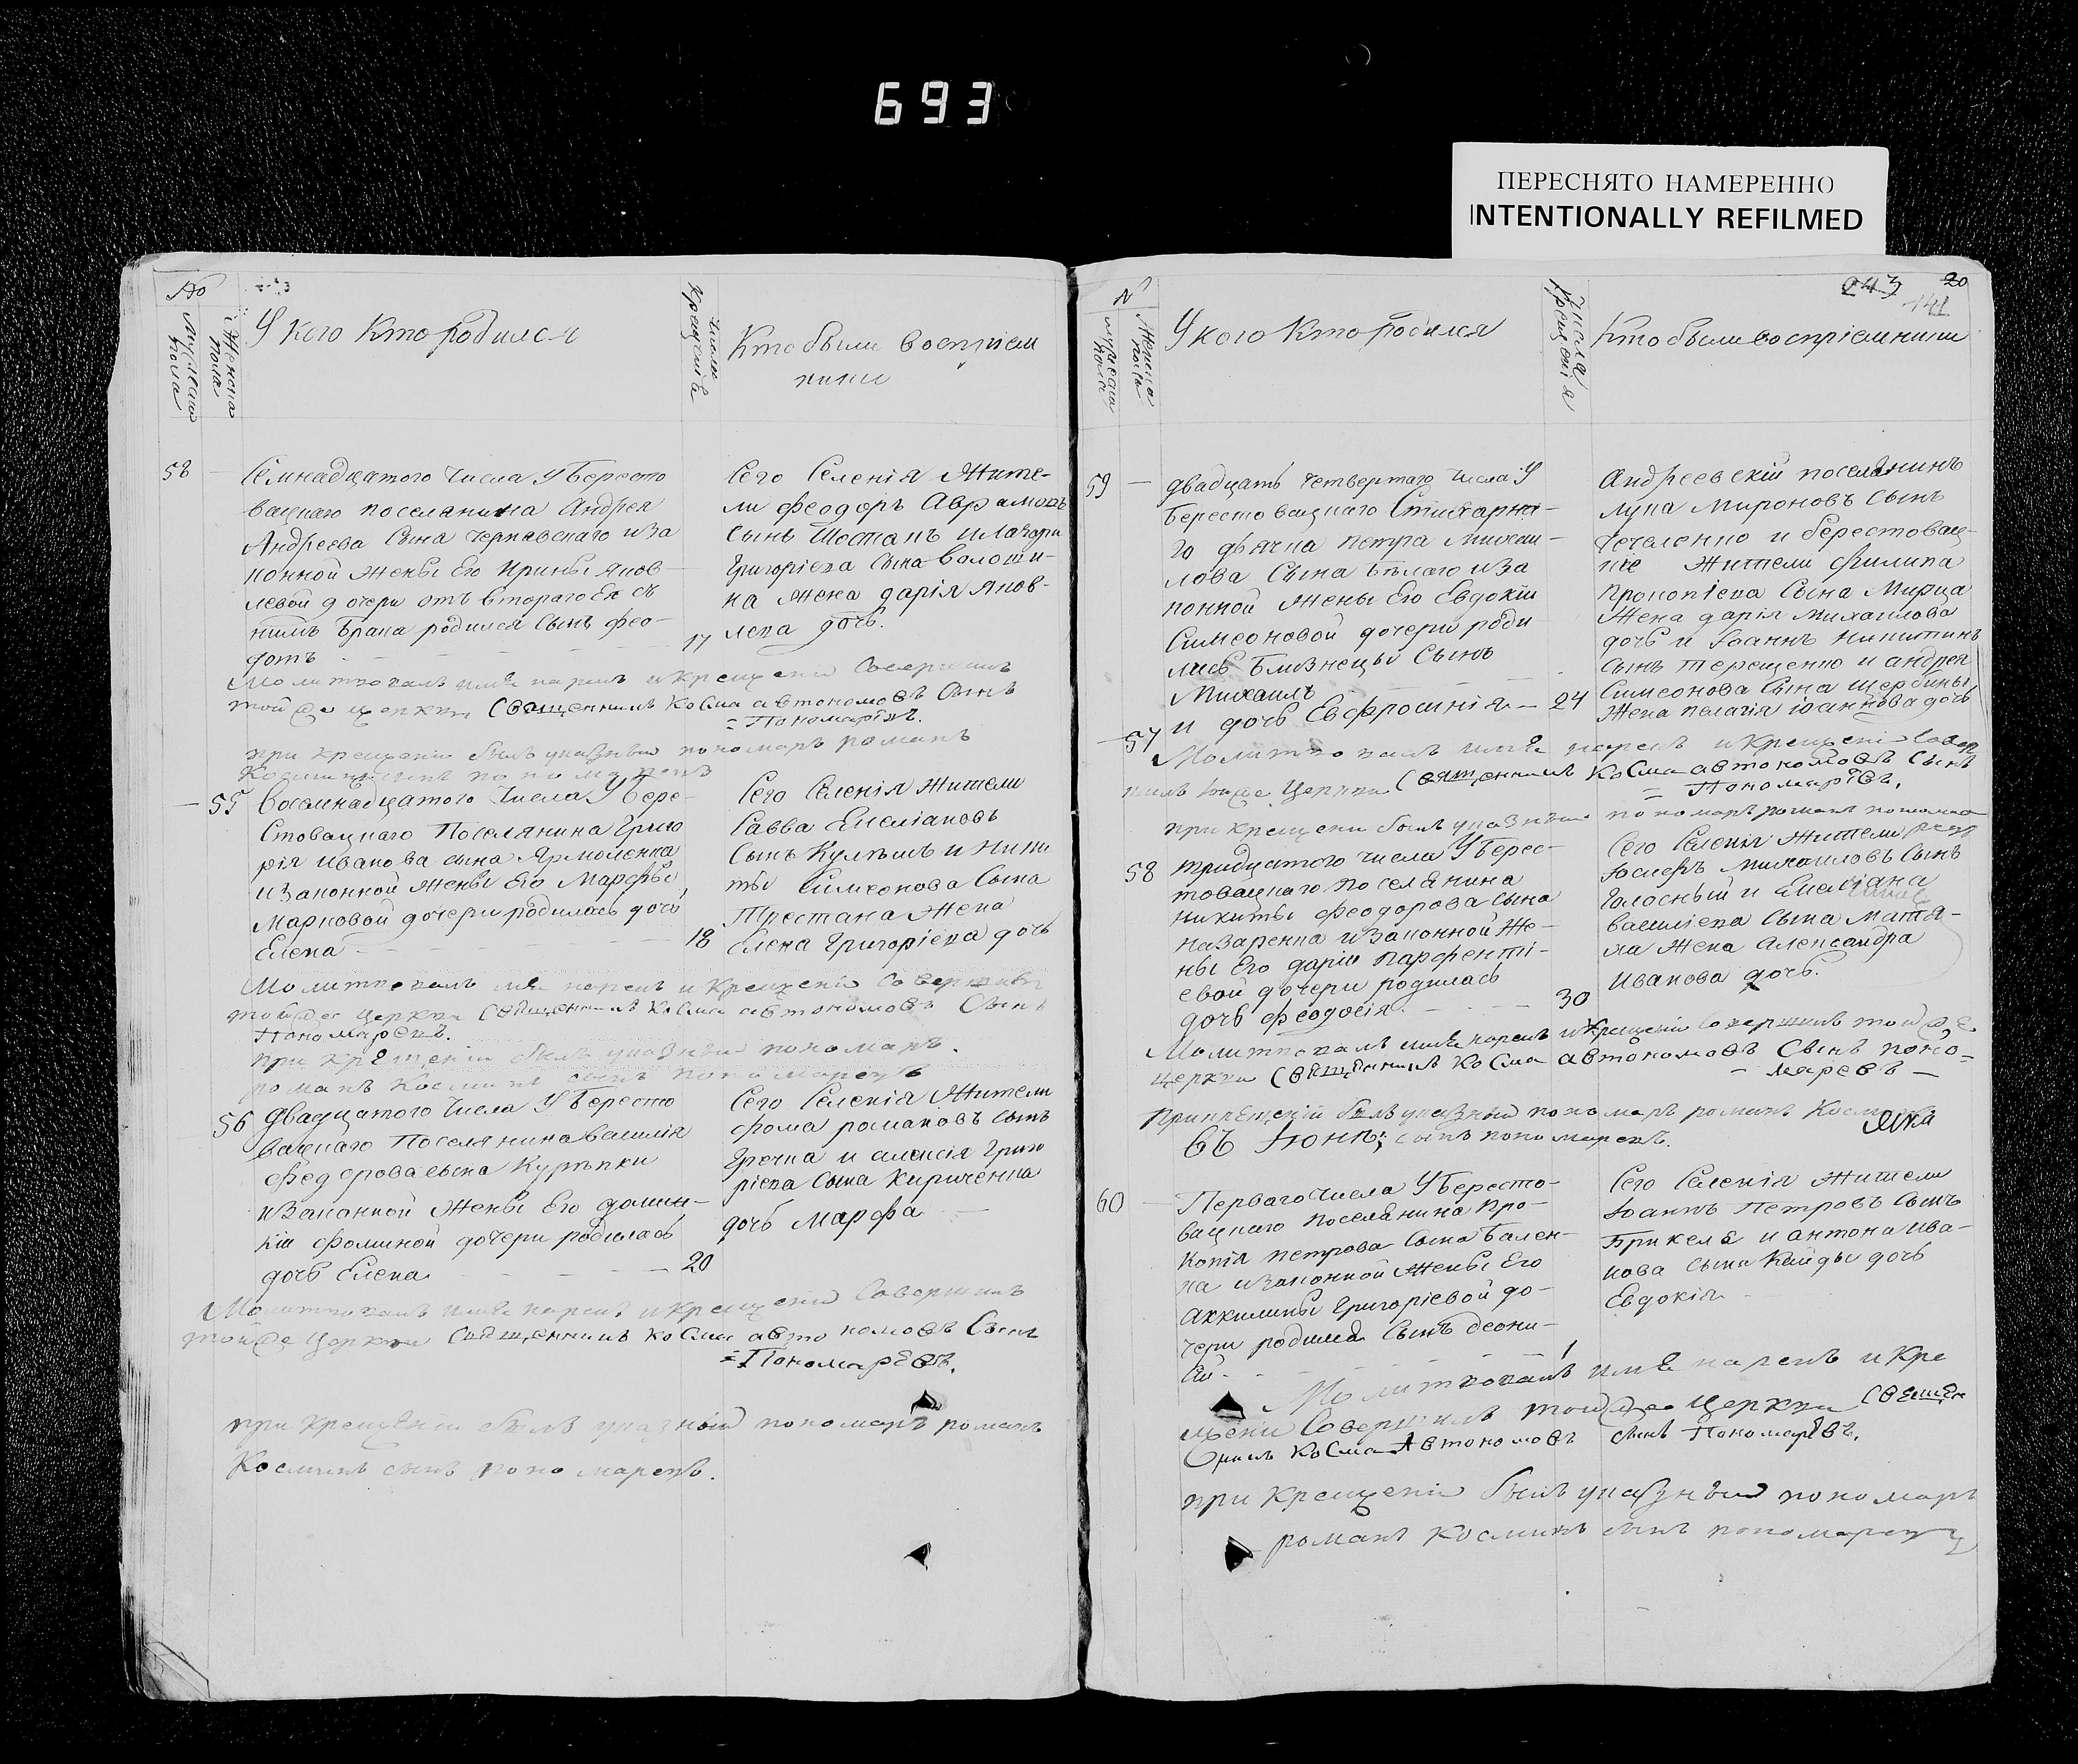 693
ПЕРЕСНЯТО НАМЕРЕННО
INTENTIONALLY REFILMED
№
Мужеска пола
Женска пола
У кого кто родился
Числа крещенія
Кто были воспріем
ники
58
Семнадцатого числа У Бересто
вацкаго поселянина Андрея
Андреева Сына Чернявскаго и за
конной жены Его Ирины Яков
левой дочери отъ втораго Ея съ
нимъ Брака родился Сынъ фео-
дотъ
17
Сего Селенія Жите-
ли феодоръ Аврамовъ
Сынъ Шостакъ и Лазаря
Григоріева Сына Волоши-
на жена дарія Яков-
лева дочь.
Молитвовалъ имя нарекъ и крещеніе Совершилъ
тойже церкви Священникъ Косма автономовъ Сынъ
=Пономарѣвъ.
при крещеніи былъ указный пономарь романъ
Косминъ сынъ пономаревъ
55
Восемнадцатого числа У Бере-
стовацкаго Поселянина Григо
рія Иванова сына Ярмоленка
и законной жены Его Марфы
Марковой дочери родилась дочь
Елена
18
Сего Селенія Жители
Савва Емеліановъ
Сынъ Кулѣшъ и Ники
ты Симеонова Сына
Тристана Жена
Елена Григоріева дочь
Молитвовалъ имя нарекъ и Крещеніе Совершилъ
тойже церкви Священникъ Косма автономовъ Сынъ
Пономаревъ.
при крещеніи былъ указный пономарь.
романъ Косминъ сынъ пономаревъ
56
Двадцатого числа У Бересто
вацкаго Поселянина василія
Федорова сына Курѣпки
и законной жены Его домни-
кіи Фоминой дочери родилась
дочь Елена
20
Сего Селенія Жители
фома романовъ сынъ
Гречка и алексія Григо
ріева Сына Кириченка
дочь Марфа
Молитвовалъ имя нарекъ и крещеніе Совершилъ
тойже Церкви Священникъ Косма автономовъ Сынъ
=Пономарѣвъ.
при крещеніи былъ указный пономарь романъ
Косминъ сынъ пономаревъ.
243
20
141
№
Мужеска пола
Женска пола
У кого Кто родился
Числа крещенія
Кто были воспріемники
59
двадцать четвертаго числа У
Берестовацкаго Стихарна-
го дьячка петра Михаи-
лова Сына Бѣлаго и за
конной жены Его Евдокіи
Симеоновой дочери роди
лись Близнецы Сынъ
Михаилъ
57
и дочь Евфросинія
24
Андреевскій поселянинъ
лука Мироновъ Сынъ
Чечеленко и берестовац-
кіе Жители Филипа
Прокопіева Сына Мирца
Жена дарія Михаилова
дочь и Іоаннъ Никитинъ
Сынъ терещенко и андрея
Симеонова Сына Щербины
Жена пелагія іоаннова дочь
Молитвовалъ имя нарекъ и Крещеніе Совер
шилъ тойже Церкви Священникъ Косма автономовъ Сынъ
=Пономарѣвъ.
при крещеніи былъ указный пономарь романъ понома
ревъ
58
тридцатого числа У Берес-
товацкаго поселянина
никиты феодорова сына
назаренка и законной Же-
ны Его даріи Парфенті-
евой дочери родилась
дочь феодосія
30
Сего Селенія Жители
Іосифъ михаиловъ Сынъ
Голосный и Емеліана
василіева Сына Матя-
ла Жена Александра
Иванова дочь.
Молитвовалъ имя нарекъ и Крещеніе Совершилъ тойже
церкви Священникъ Косма автономовъ Сынъ поно-
маревъ
При крещеніи былъ указный пономарь романъ Косминъ
Въ Іюнѣ; сынъ пономаревъ.
60
Перваго числа У Бересто-
вацкаго поселянина Про-
копія петрова Сына Бален-
ка и законной жены Его
Аккилины Григоріевой до-
чери родился Сынъ деони-
сій
1
Сего Селенія Жители
Іоаннъ Петровъ Сынъ
Брикеля и антона ива-
нова сына Кайды дочь
Евдокія
Молитвовалъ имя нарекъ и Кре
щеніе Совершилъ тойже Церкви Священ
никъ Косма Автономовъ сынъ Пономарѣвъ.
при крещеніи былъ указный пономарь
романъ косминъ сынъ пономаревъ